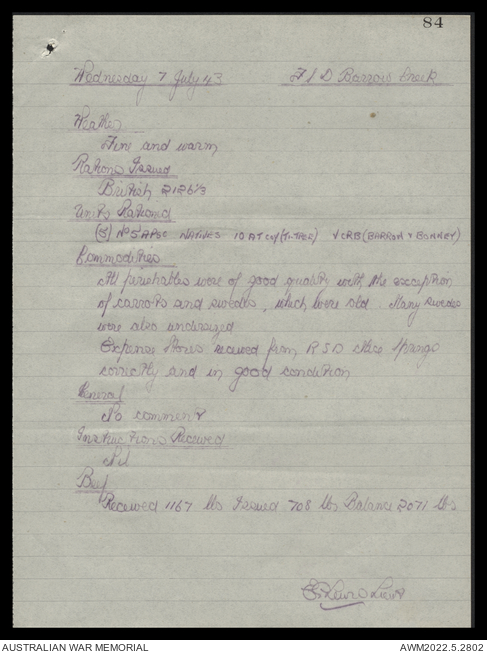 84
Wednesday 7 July 43 F S D Barrow Creek
Weather
Fine and warm
Rations Issued
British 2126⅓
Units Rationed
(5) No 5 APSC NATIVES 10 AT coy (T-TREE) VCRB (BARROW & BONNEY)
Commodities
All perishables were of good quality with the exception
of carrots and swedes, which were old. Many swedes
were also undersized
Expense Stores received from R S D Alice Springs
correctly and in good condition
General
No comment
Instructions Received
Nil
Beef
Received 1167 lbs Issued 708 lbs Balance 2071 lbs
Lieut
AUSTRALIAN WAR MEMORIAL AWM2022.5.2802